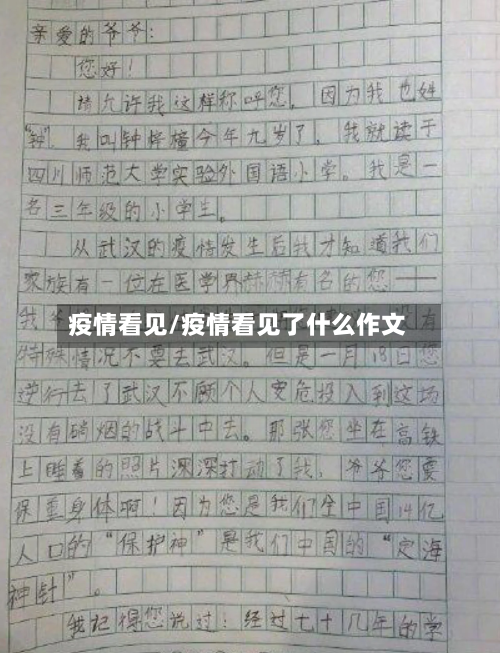 亲爱的爷爷：
您好！
请允许我这样称呼您，因为我也姓
“钟”，我叫钟梓橦今年九岁了，我就读于
四川师范大学实验外国语小学。我是一
名三年级的小学生。
从武汉的疫情发生后我才知道我们
家族有一位在医学界赫赫有名的您——
疫情看见/疫情看见了什么作文
特殊情况不要去武汉。但是一月18日您
逆行去了武汉不顾个人安危投入到这场
没有硝烟的战斗中去。那张您坐在高铁
上睡着的照片深深打动了我，爷爷您要
保重身体啊！因为您是我们全中国14亿
人口的“保护神”是我们中国的“定海
神针”。
我记得您说过：经过七十几年的学